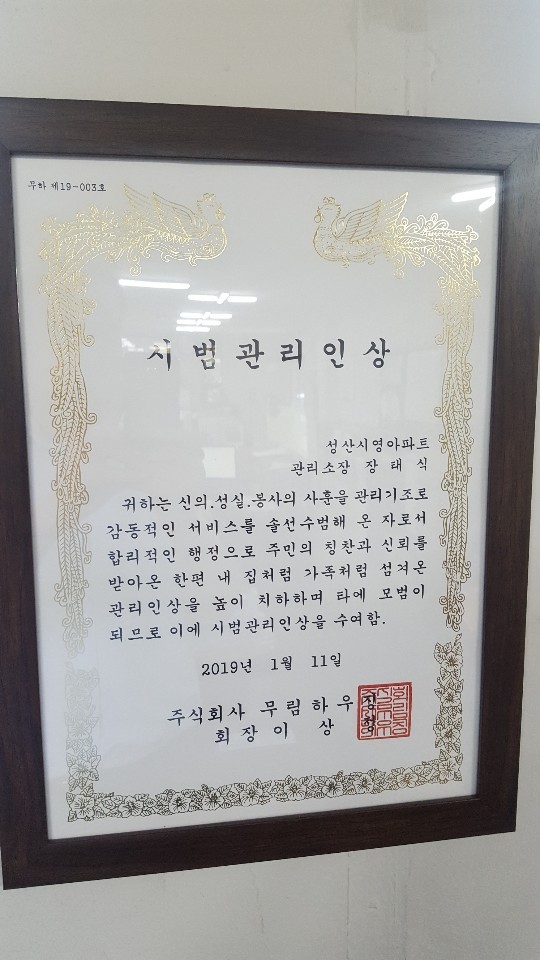 무하 제19-003호
시범관리인상
성산시영아파트
관리소장 장태식
귀하는 신의.성실.봉사의 사훈을 관리기조로
감동적인 서비스를 솔선수범해 온 자로서
합리적인 행정으로 주민의 칭찬과 신뢰를
받아온 한편 내 집처럼 가족처럼 섬겨온
관리인상을 높이 치하하며 타에 모범이
되므로 이에 시범관리인상을 수여함.
2019년 1월 11일
주식회사 무림하우징
회장 이 상